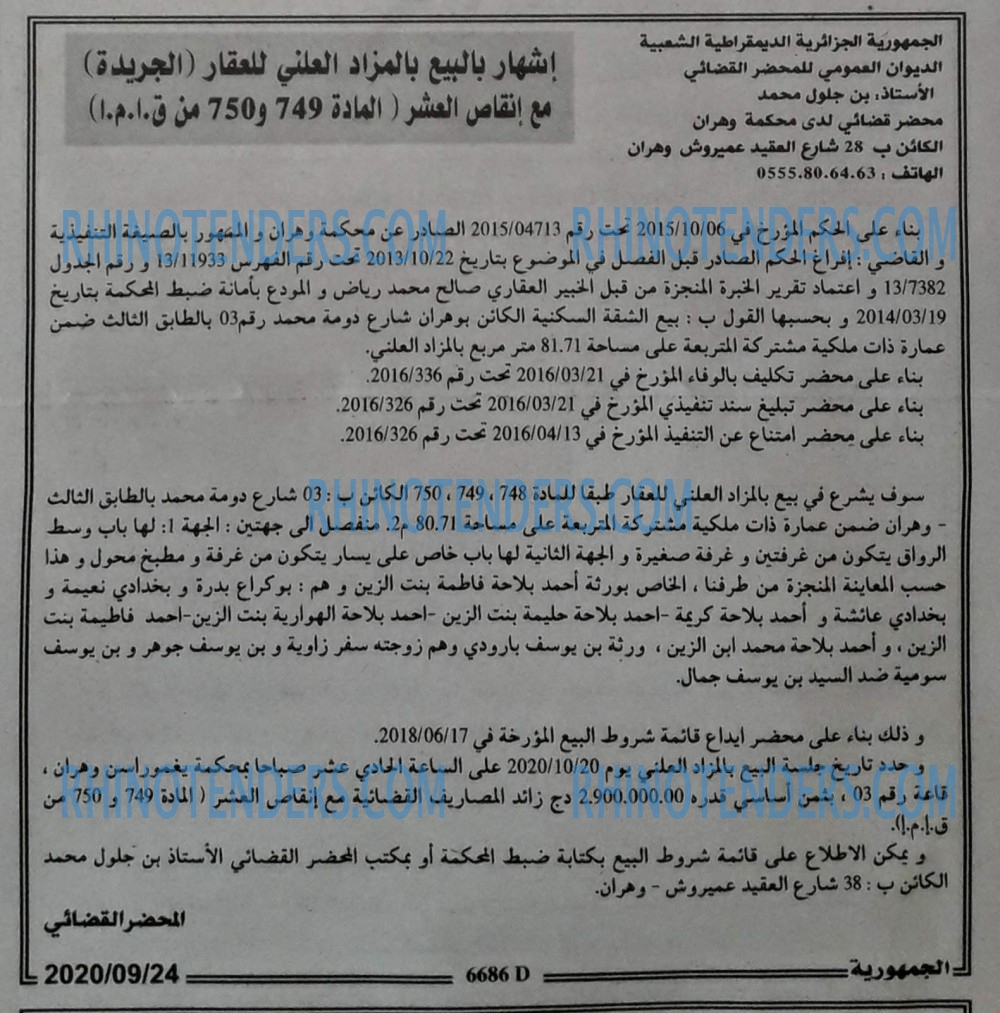 الجمهورية الجزائرية الديمقراطية الشعبية
الديوان العمومي للمحضر القضائي
الأستاذ: بن جلول محمد
محضر قضائي لدى محكمة وهران
الكائن ب 28 شارع العقيد عميروش وهران
الهاتف : 0555.80.64.63
إشهار بالبيع بالمزاد العلني للعقار (الجريدة)
مع إنقاص العشر ( المادة 749 و750 من ق.ا.م.ا)
بناء على الحكم المؤرخ في 2015/10/06 تحت رقم 2015/04713 الصادر عن محكمة وهران و الممهور بالصيغة التنفيذية
و القاضي : إفراغ الحكم الصادر قبل الفصل في الموضوع بتاريخ 2013/10/22 تحت رقم الفهرس 13/11933 و رقم الجدول
13/7382 و اعتماد تقرير الخبرة المنجزة من قبل الخبير العقاري صالح محمد رياض و المودع بأمانة ضبط المحكمة بتاريخ
2014/03/19 و بحسبها القول ب : بيع الشقة السكنية الكائن بوهران شارع دومة محمد رقم03 بالطابق الثالث ضمن
عمارة ذات ملكية مشتركة المتربعة على مساحة 81.71 متر مربع بالمزاد العلني.
بناء على محضر تكليف بالوفاء المؤرخ في 2016/03/21 تحت رقم 2016/336.
بناء على محضر تبليغ سند تنفيذي المؤرخ في 2016/03/21 تحت رقم 2016/326.
بناء على محضر امتناع عن التنفيذ المؤرخ في 2016/04/13 تحت رقم 2016/326.
سوف يشرع في بيع بالمزاد العلني للعقار طبقا للمادة 748 ، 749 ، 750 الكائن ب : 03 شارع دومة محمد بالطابق الثالث
- وهران ضمن عمارة ذات ملكية مشتركة المتربعة على مساحة 80.71 م2. منفصل الى جهتين : الجهة 1: لها باب وسط
الرواق يتكون من غرفتين و غرفة صغيرة و الجهة الثانية لها باب خاص على يسار يتكون من غرفة و مطبخ محول و هذا
حسب المعاينة المنجزة من طرفنا ، الخاص بورثة أحمد بلاحة فاطمة بنت الزين و هم : بوكراع بدرة و بخدادي نعيمة و
بخدادي عائشة و أحمد بلاحة كريمة -احمد بلاحة حليمة بنت الزين -احمد بلاحة الهوارية بنت الزين-احمد فاطيمة بنت
الزين ، و أحمد بلاحة محمد ابن الزين ، ورثة بن يوسف بارودي وهم زوجته سفر زاوية و بن يوسف جوهر و بن يوسف
سومية ضد السيد بن يوسف جمال.
و ذلك بناء على محضر ايداع قائمة شروط البيع المؤرخة في 2018/06/17.
و حدد تاريخ جلسة البيع بالمزاد العلني يوم 2020/10/20 على الساعة الحادي عشر صباحا بمحكمة يغموراسن وهران ،
قاعة رقم 03 ، بثمن أساسي قدره 2.900.000.00 دج زائد المصاريف القضائية مع إنقاص العشر ( المادة 749 و 750 من
ق.ا.م.ا).
و يمكن الاطلاع على قائمة شروط البيع بكتابة ضبط المحكمة أو بمكتب المحضر القضائي الأستاذ بن جلول محمد
الكائن ب : 38 شارع العقيد عميروش - وهران.
المحضر القضائي
الجمهورية 6686 D 2020/09/24
RHINOTENDERS.COM RHINOTENDERS.COM
RHINOTENDERS.COM
RHINOTENDERS.COM RHINOTENDERS.COM